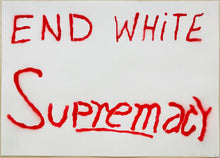 END WHiTE
Supremacy